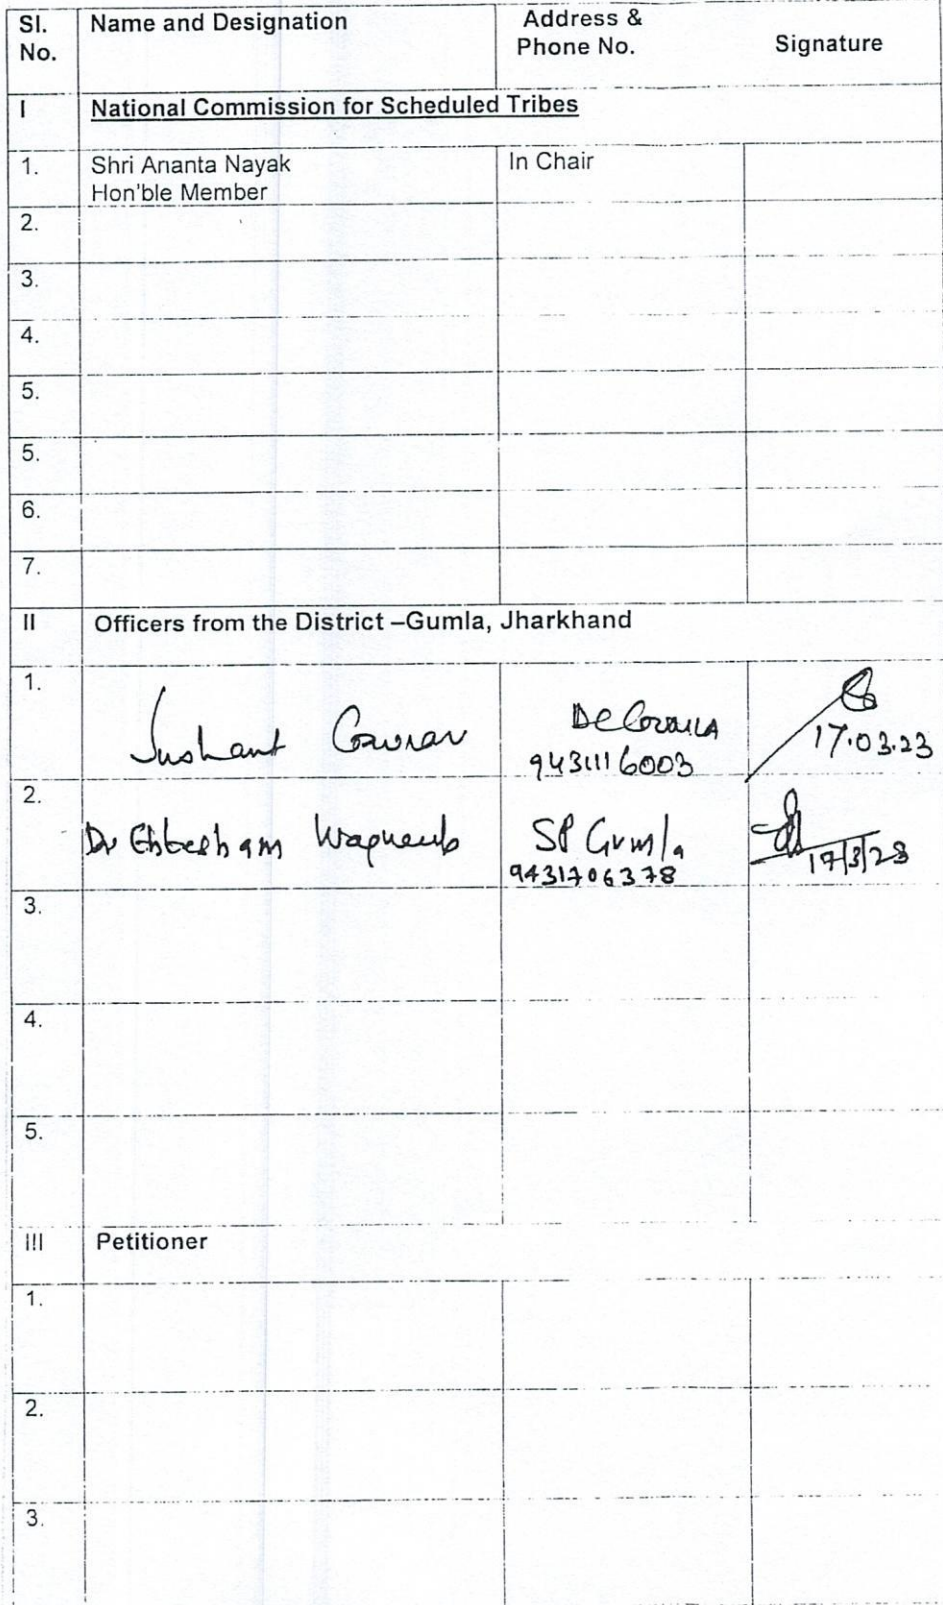 Sl. No. Name and Designation Address & Phone No. Signature
I National Commission for Scheduled Tribes
1. Shri Ananta Nayak In Chair
Hon'ble Member
2.
3.
4.
5.
5.
6.
7.
II Officers from the District –Gumla, Jharkhand
1. Sushant Gaurav DC Gumla
9431116003
17.03.23
2. Dr Ehtesham Waquarib SP Gumla
9431706378
17/3/23
3.
4.
5.
III Petitioner
1.
2.
3.